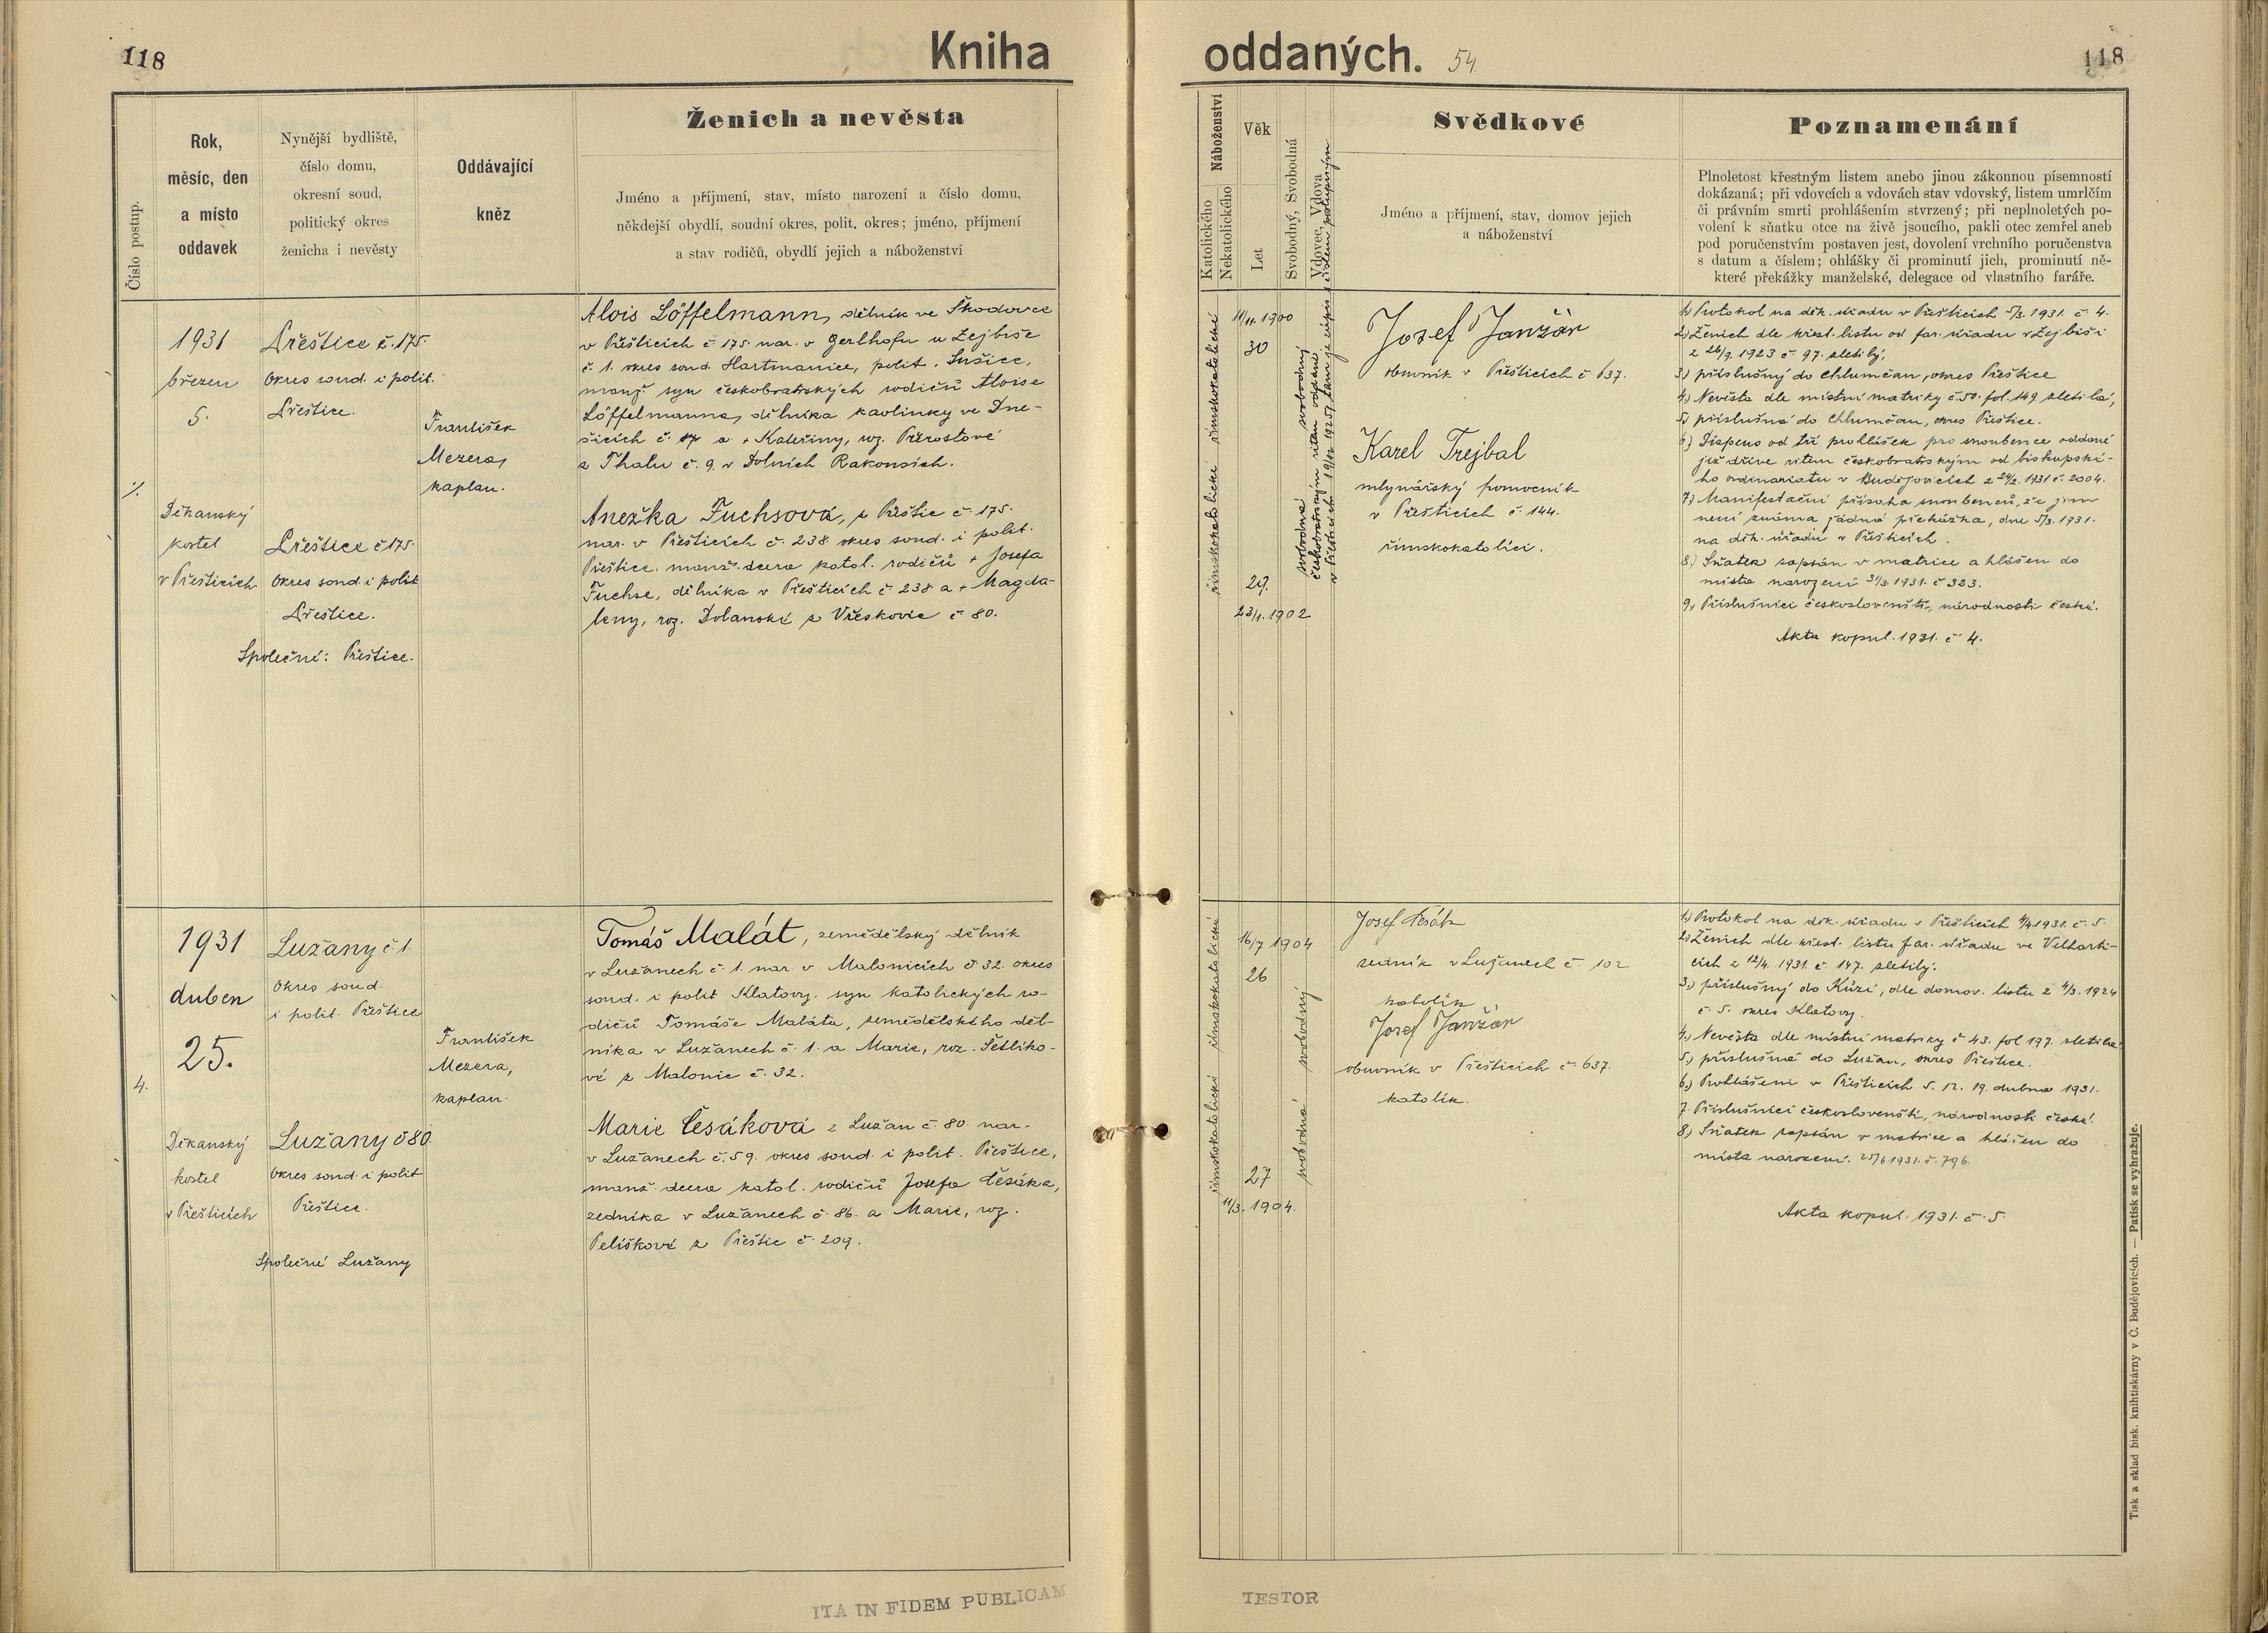 118
Kniha
oddaných. 54
118
Číslo postup.
Rok,
měsíc, den
a místo
oddavek
Nynější bydliště,
číslo domu,
okresní soud,
politický okres
ženicha i nevěsty
Oddávající
kněz
Ženich a nevěsta
Jméno a příjmení, stav, místo narození a číslo domu,
někdejší obydlí, soudní okres, polit. okres; jméno, příjmení
a stav rodičů, obydlí jejich a náboženství
Náboženství
Katolického
Nekatolického
Věk
Let
Svobodný, Svobodná
Vdovec, Vdova
Svědkové
Jméno a příjmení, stav, domov jejich
a náboženství
Poznamenání
Plnoletost křestným listem anebo jinou zákonnou písemností
dokázaná; při vdovcích a vdovách stav vdovský, listem umrlčím
či právním smrti prohlášením stvrzený; při neplnoletých po-
volení k sňatku otce na živě jsoucího, pakli otec zemřel aneb
pod poručenstvím postaven jest, dovolení vrchního poručenstva
s datum a číslem; ohlášky či prominutí jich, prominutí ně-
které překážky manželské, delegace od vlastního faráře.
1931
březen
5.
Děkanský
kostel
v Přešticích
Přeštice č. 175.
Okres soud. i polit.
Přeštice.
Přeštice č 175.
Okres soud. i polit
Přeštice.
Společné: Přeštice.
František
Mezera,
kaplan.
Alois Löffelmann, dělník ve Škodovce
v Přešticích č. 175. nar. v Gerlhofu u Zejbiše
č. 1. okres soud. Hartmanice, polit. Sušice,
manž syn českobratrských rodičů Aloise
Löffelmanna, dělníka kaolinky ve Dne-
šicích č. 17 a + Kateřiny, roz. Přerostové
z Thalu č. 9. v Dolních Rakousích.
Anežka Fuchsová, z Přeštic č. 175.
nar. v Přešticích č. 238. okres soud. i polit.
Přeštice. manž. dcera katol. rodičů + Josefa
Fuchse, dělníka v Přešticích č 238 a + Magda-
leny, roz. Dolanské z Vřeskovic č 80.
římskokatolické
římskokatolické
11/11. 1900
30
29.
23/1. 1902
svobodný
svobodná
českobratrským ritem oddáni
Josef Janžár
obuvník v Přešticích č 637.
Karel Trejbal
mlynářský pomocník
v Přešticích č. 144.
římskokatolíci.
1) Protokol na děk. úřadu v Přešticích 5/3. 1931. č. 4.
2) Ženich dle křest. listu od far. úřadu v Zejbiši
z 26/9. 1923 č. 97. zletilý,
3) příslušný do Chlumčan, okres Přeštice
4) Nevěsta dle místní matriky č. 50. fol. 149 zletilá,
5) příslušná do Chlumčan, okres Přeštice.
6) Dispens od tří prohlášek pro snoubence oddané
již dříve ritem českobratrským od biskupské-
ho ordinariatu v Budějovicích z 24/2. 1931 č. 2004.
7) Manifestační přísaha snoubenců, že jim
není známa žádná překážka, dne 5/3. 1931.
na děk. úřadu v Přešticích.
8) Sňatek zapsán v matrice a hlášen do
místa narození 31/3. 1931. č 323.
9) Příslušníci českoslovenští, národnosti české.
Akta kopul. 1931. č 4.
1931
duben
25.
4.
Děkanský
kostel
v Přešticích
Lužany č 1.
Okres soud.
i polit. Přeštice
Lužany č 80.
Okres soud. i polit
Přeštice.
Společné Lužany
František
Mezera,
kaplan.
Tomáš Malát, zemědělský dělník
v Lužanech č. 1. nar. v Malonicích č 32. okres
soud. i polit Klatovy. syn katolických ro-
dičů Tomáše Maláta, zemědělského děl-
níka v Lužanech č. 1. a Marie, roz. Šetlíko-
vé z Malonic č. 32.
Marie Česáková z Lužan č 80. nar.
v Lužanech č. 59. okres soud. i polit. Přeštice,
manž. dcera katol. rodičů Josefa Česáka,
zedníka v Lužanech č. 86. a Marie, roz.
Pelíškové z Přeštic č. 209.
římskokatolické
římskokatolické
16/7 1904
26
27
11/3. 1904.
svobodný
svobodná
Josef Česák
zedník v Lužanech č. 102
katolík
Josef Janžár
obuvník v Přešticích č. 637.
katolík.
1) Protokol na děk. úřadu v Přešticích 4/4 1931. č. 5.
2) Ženich dle křest. listu far. úřadu ve Velharti-
cích z 12/4. 1931. č. 147. zletilý.
3.) příslušný do Kůzí, dle domov. listu z 4/3. 1924
č. 5. okres Klatovy.
4.) Nevěsta dle místní matriky č 43. fol 197. zletilá
5.) příslušná do Lužan, okres Přeštice.
6.) Prohlášeni v Přešticích 5. 12. 19. dubna 1931.
7. Příslušníci českoslovenští, národnosti české.
8.) Sňatek zapsán v matrice a hlášen do
místa narození. 25/6 1931. č. 796.
Akta kopul. 1931. č. 5.
ITA IN FIDEM PUBLICAM
TESTOR
Tisk a sklad bisk. knihtiskárny v Č. Budějovicích. — Patisk se vyhražuje.